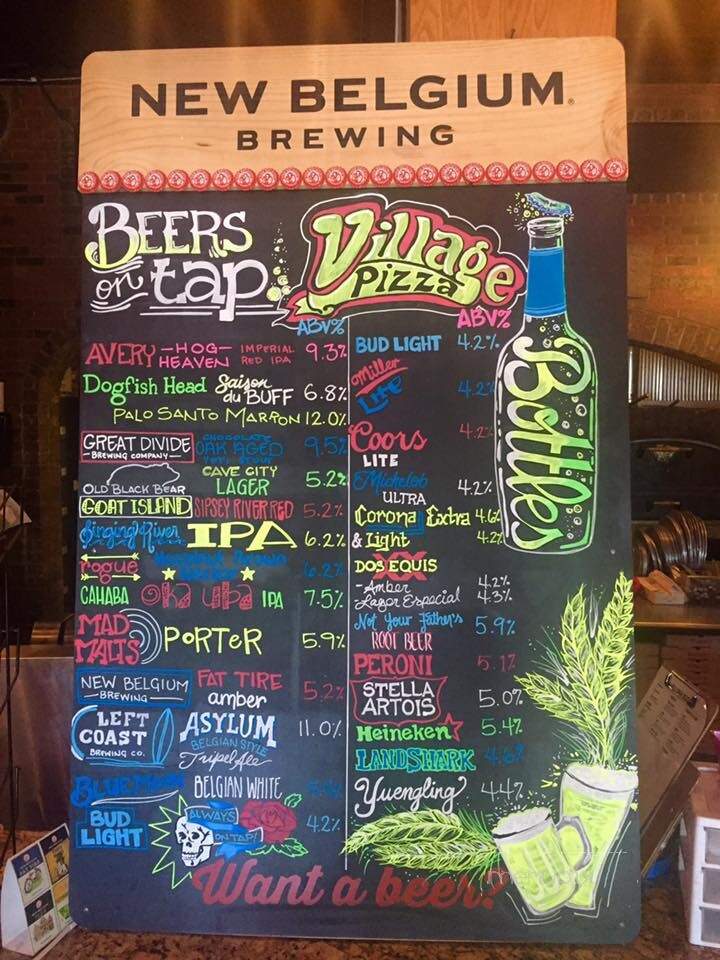 NEW BELGIUM
BREWING
BEERS on tap
Village Pizza
ABV%
AVERY -HOG- HEAVEN IMPERIAL RED IPA 9.3%
Dogfish Head Saison du BUFF 6.8%
PALO SANTO MARRON 12.0%
GREAT DIVIDE BREWING COMPANY CHOCOLATE OAK AGED 9.5%
OLD BLACK BEAR CAVE CITY LAGER 5.2%
GOAT ISLAND SIPSEY RIVER RED 5.2%
Singing River IPA 6.2%
rogue 6.2%
CAHABA Oka Uba IPA 7.5%
MAD MALTS PORTER 5.9%
NEW BELGIUM BREWING FAT TIRE amber 5.2%
LEFT COAST BREWING CO. ASYLUM BELGIAN STYLE Tripel Ale 11.0%
BLUE MOON BELGIAN WHITE
BUD LIGHT ALWAYS ON TAP! 4.2%
ABV%
BUD LIGHT 4.2%
Miller Lite 4.2%
Coors LITE 4.2%
Michelob ULTRA 4.2%
Corona Extra 4.6%
& Light 4.2%
DOS EQUIS XX
-Amber 4.2%
Lager Especial 4.3%
Not Your Father's ROOT BEER 5.9%
PERONI 5.1%
STELLA ARTOIS 5.0%
Heineken 5.4%
LANDSHARK 4.6%
Yuengling 4.4%
Bottles
Want a beer?